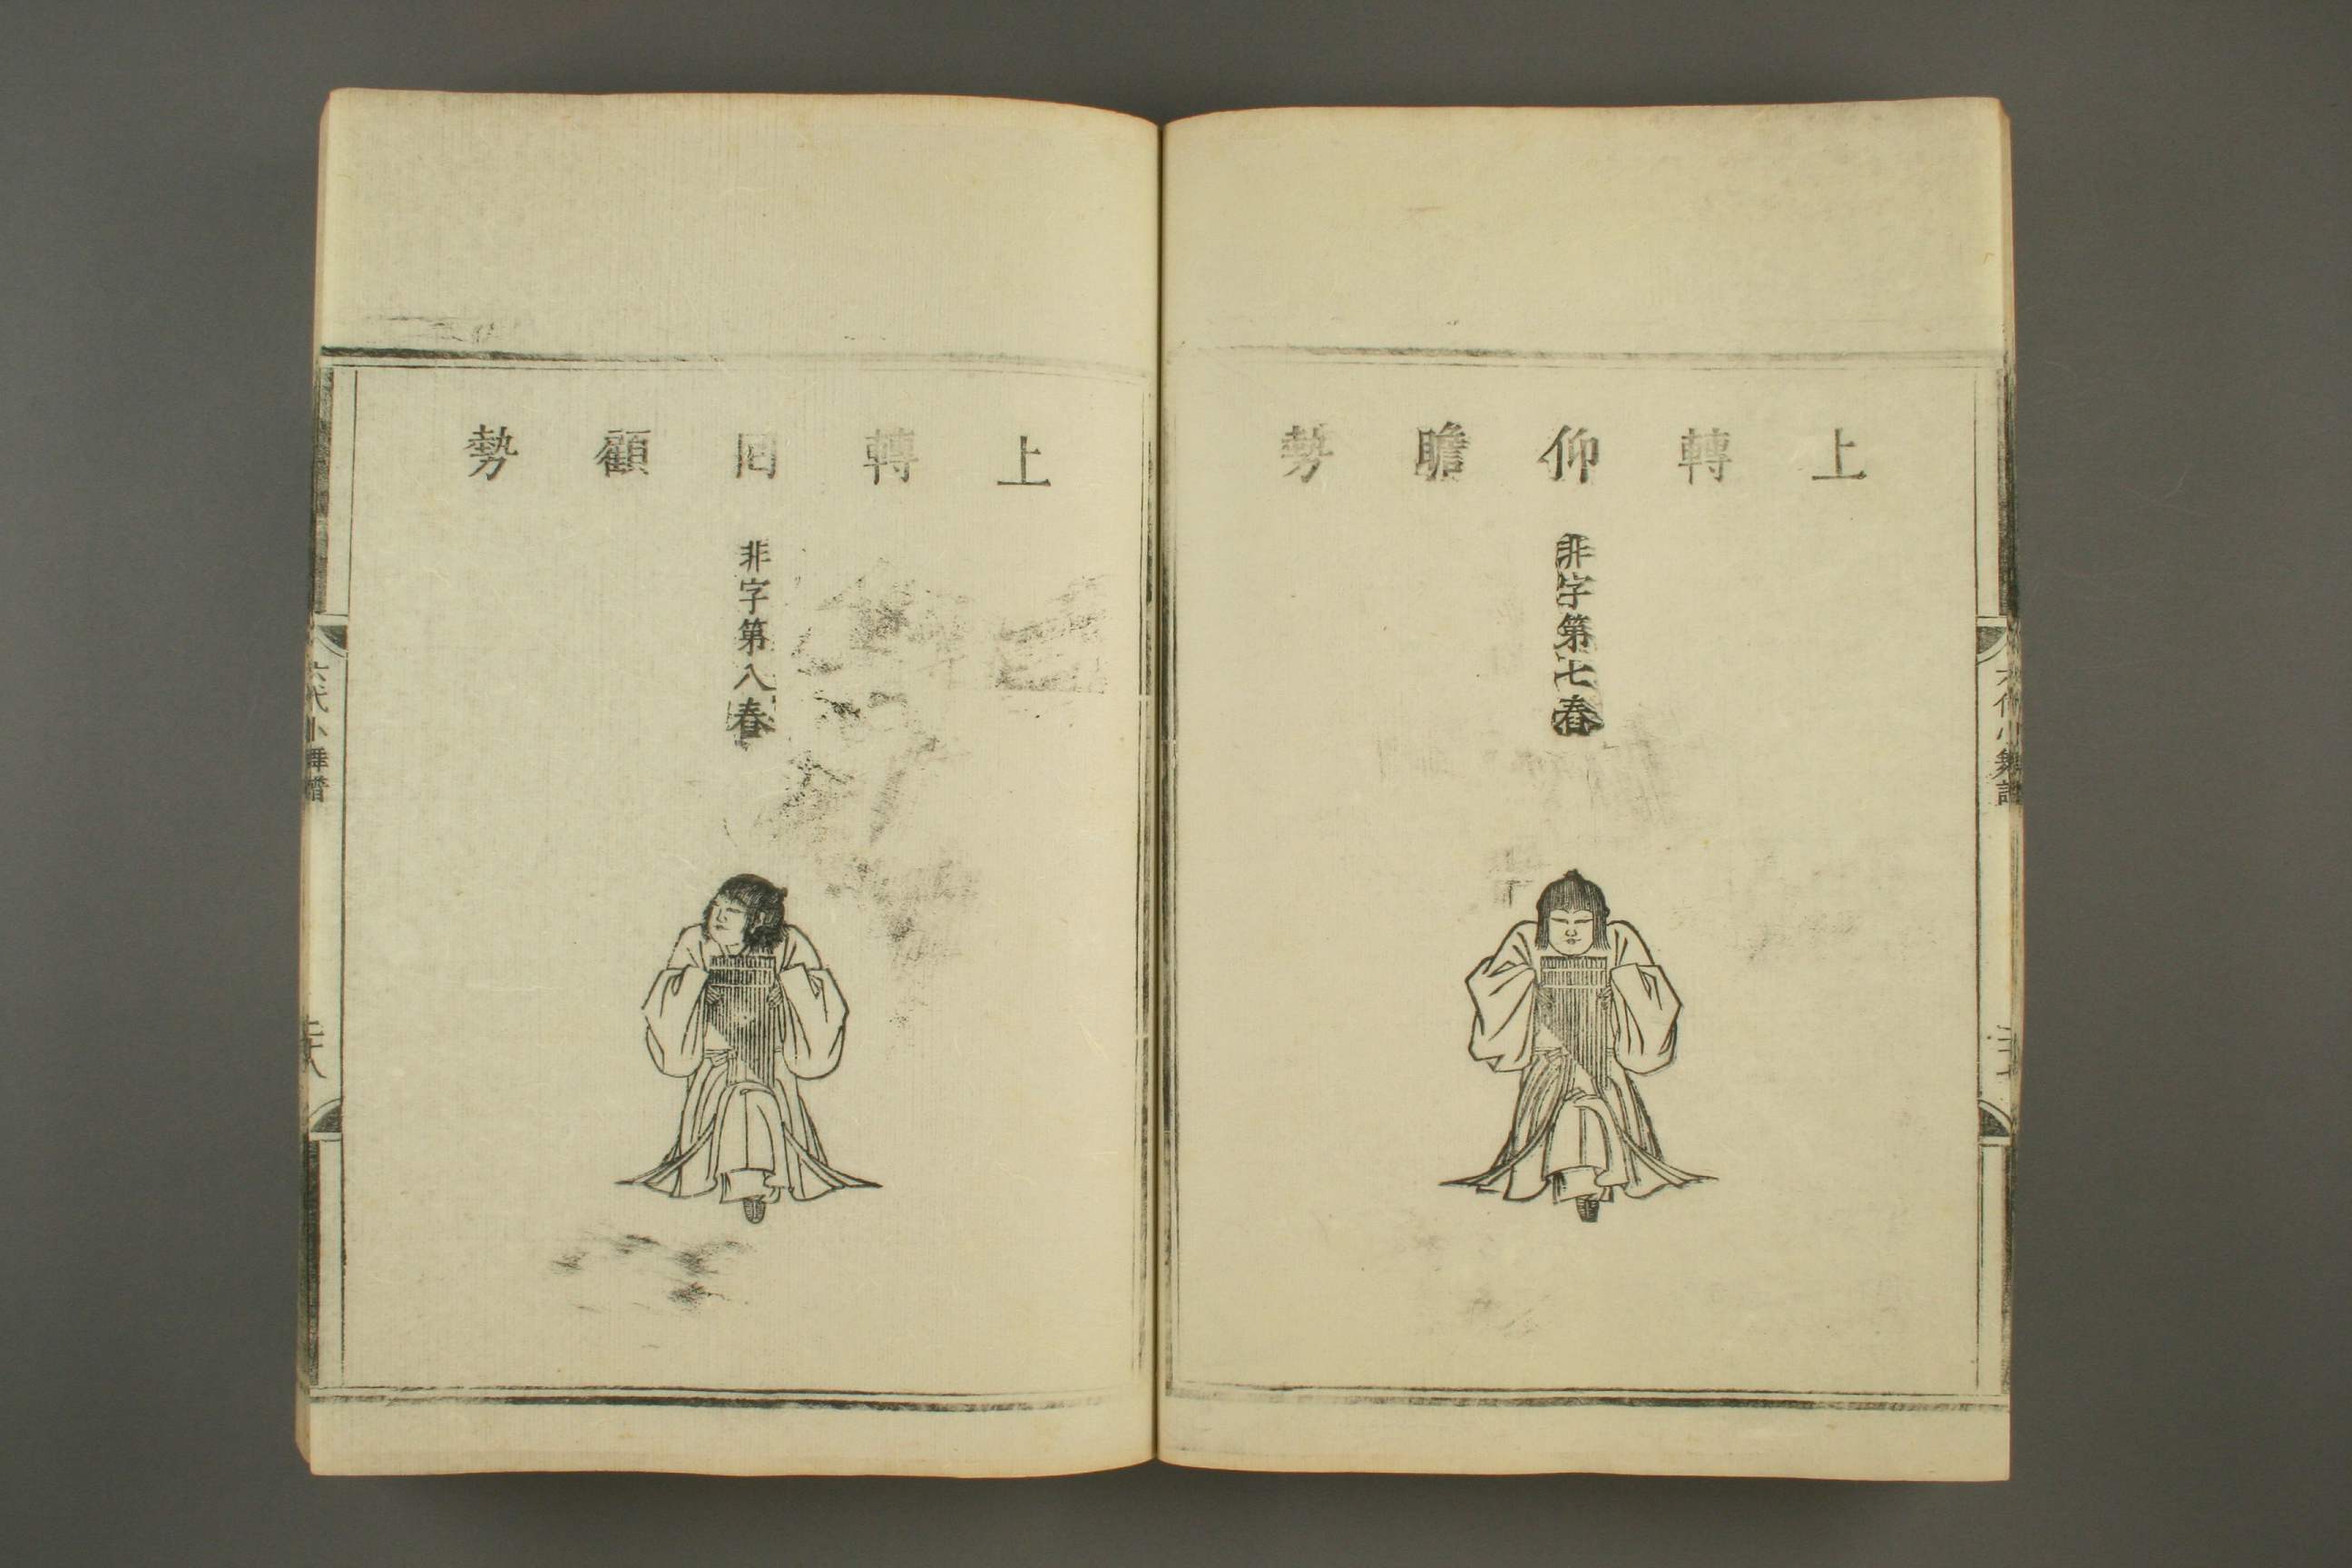 上轉仰瞻勢
非字第七舂
六代小舞譜
上轉回顧勢
非字第八舂
六代小舞譜